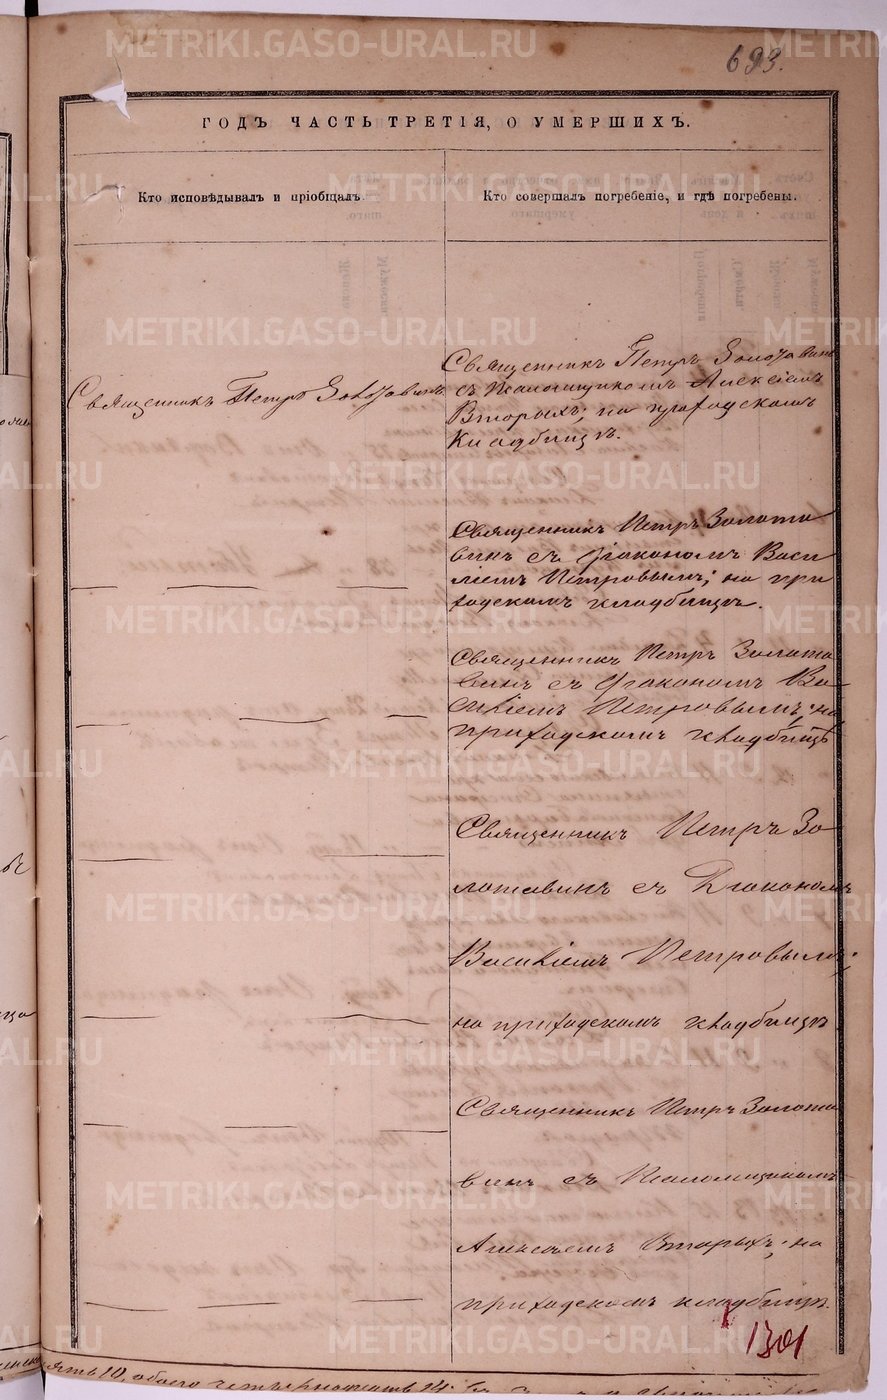 693.
ГОДЪ ЧАСТЬ ТРЕТІЯ, О УМЕРШИХЪ.
Кто исповѣдывалъ и пріобщалъ.
Кто совершалъ погребеніе, и гдѣ погребены.
Священникъ Петръ Золотавинъ
Священникъ Петръ Золотавинъ
съ Псаломщикомъ Алексіемъ
Вторыхъ; на приходскомъ
Кладбищѣ.
Священникъ Петръ Золота
винъ съ Діакономъ Васи
ліемъ Петровымъ; на при
ходскомъ кладбищѣ.
Священникъ Петръ Золота
винъ съ Діакономъ Ва-
силіемъ Петровымъ; на
приходскомъ кладбищѣ
Священникъ Петръ Зо
лотавинъ съ Діакономъ
Василіемъ Петровымъ;
на приходскомъ кладбищѣ
Священникъ Петръ Золота
винъ съ Псаломщикомъ
Алексѣемъ Вторыхъ; на
приходскомъ кладбищѣ.
1301
METRIKI.GASO-URAL.RU